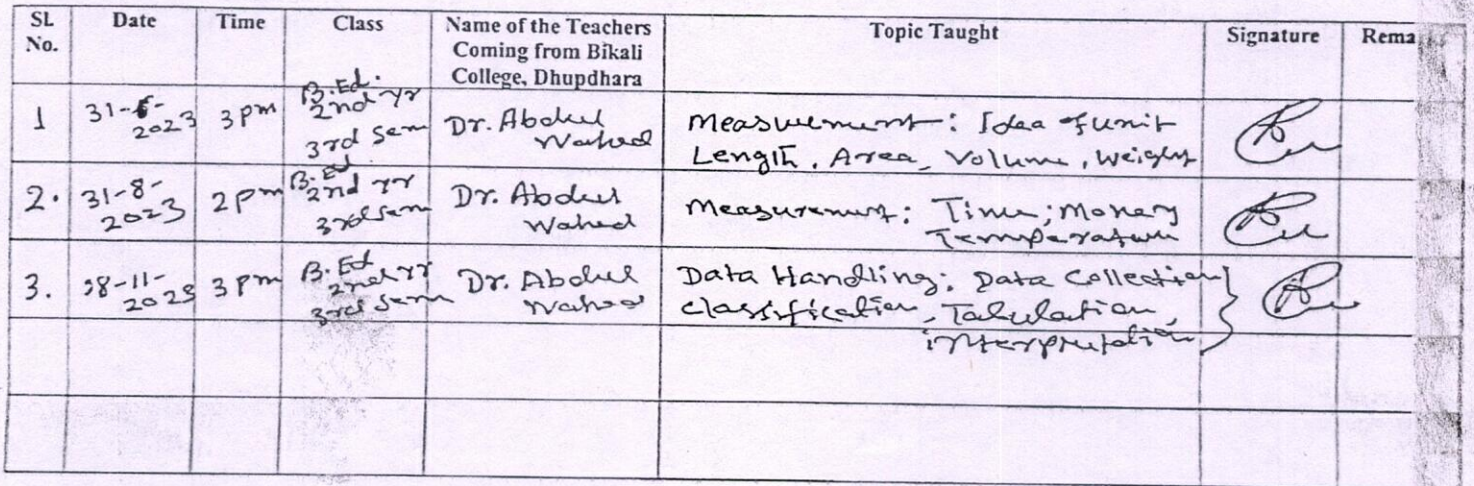 SL No. Date Time Class Name of the Teachers Coming from Bikali College, Dhupdhara Topic Taught Signature Rema
1 31- -2023 3 pm B.Ed. 2nd yr 3rd Sem Dr. Abdul Wahed Measurement: Idea of unit
Length, Area, Volume, Weight
2. 31-8-2023 2 pm B.Ed 2nd yr 3rd Sem Dr. Abdul Wahed Measurement: Time; Money
Temperature
3. 28-11-2023 3 pm B.Ed 2nd yr 3rd Sem Dr. Abdul Wahed Data Handling: Data Collection
Classification, Tabulation,
interpretation